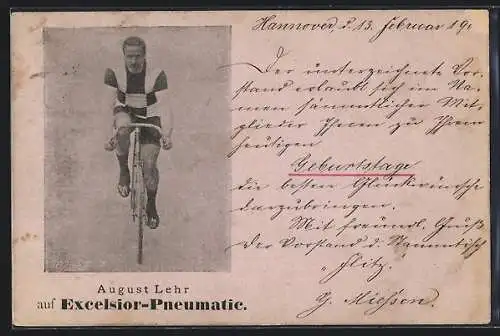 Hannover, d. 13. Februar 19
Der unterzeichnete Vor-
stand erlaubt sich im Na-
men sämmtlicher Mit-
glieder Ihnen zu Ihrem
heutigen
Geburtstage
die besten Glückwünsche
darzubringen.
Mit freundl. Gruß
Der Vorstand d. Stammtisch
„Flitz.
August Lehr
auf Excelsior-Pneumatic.